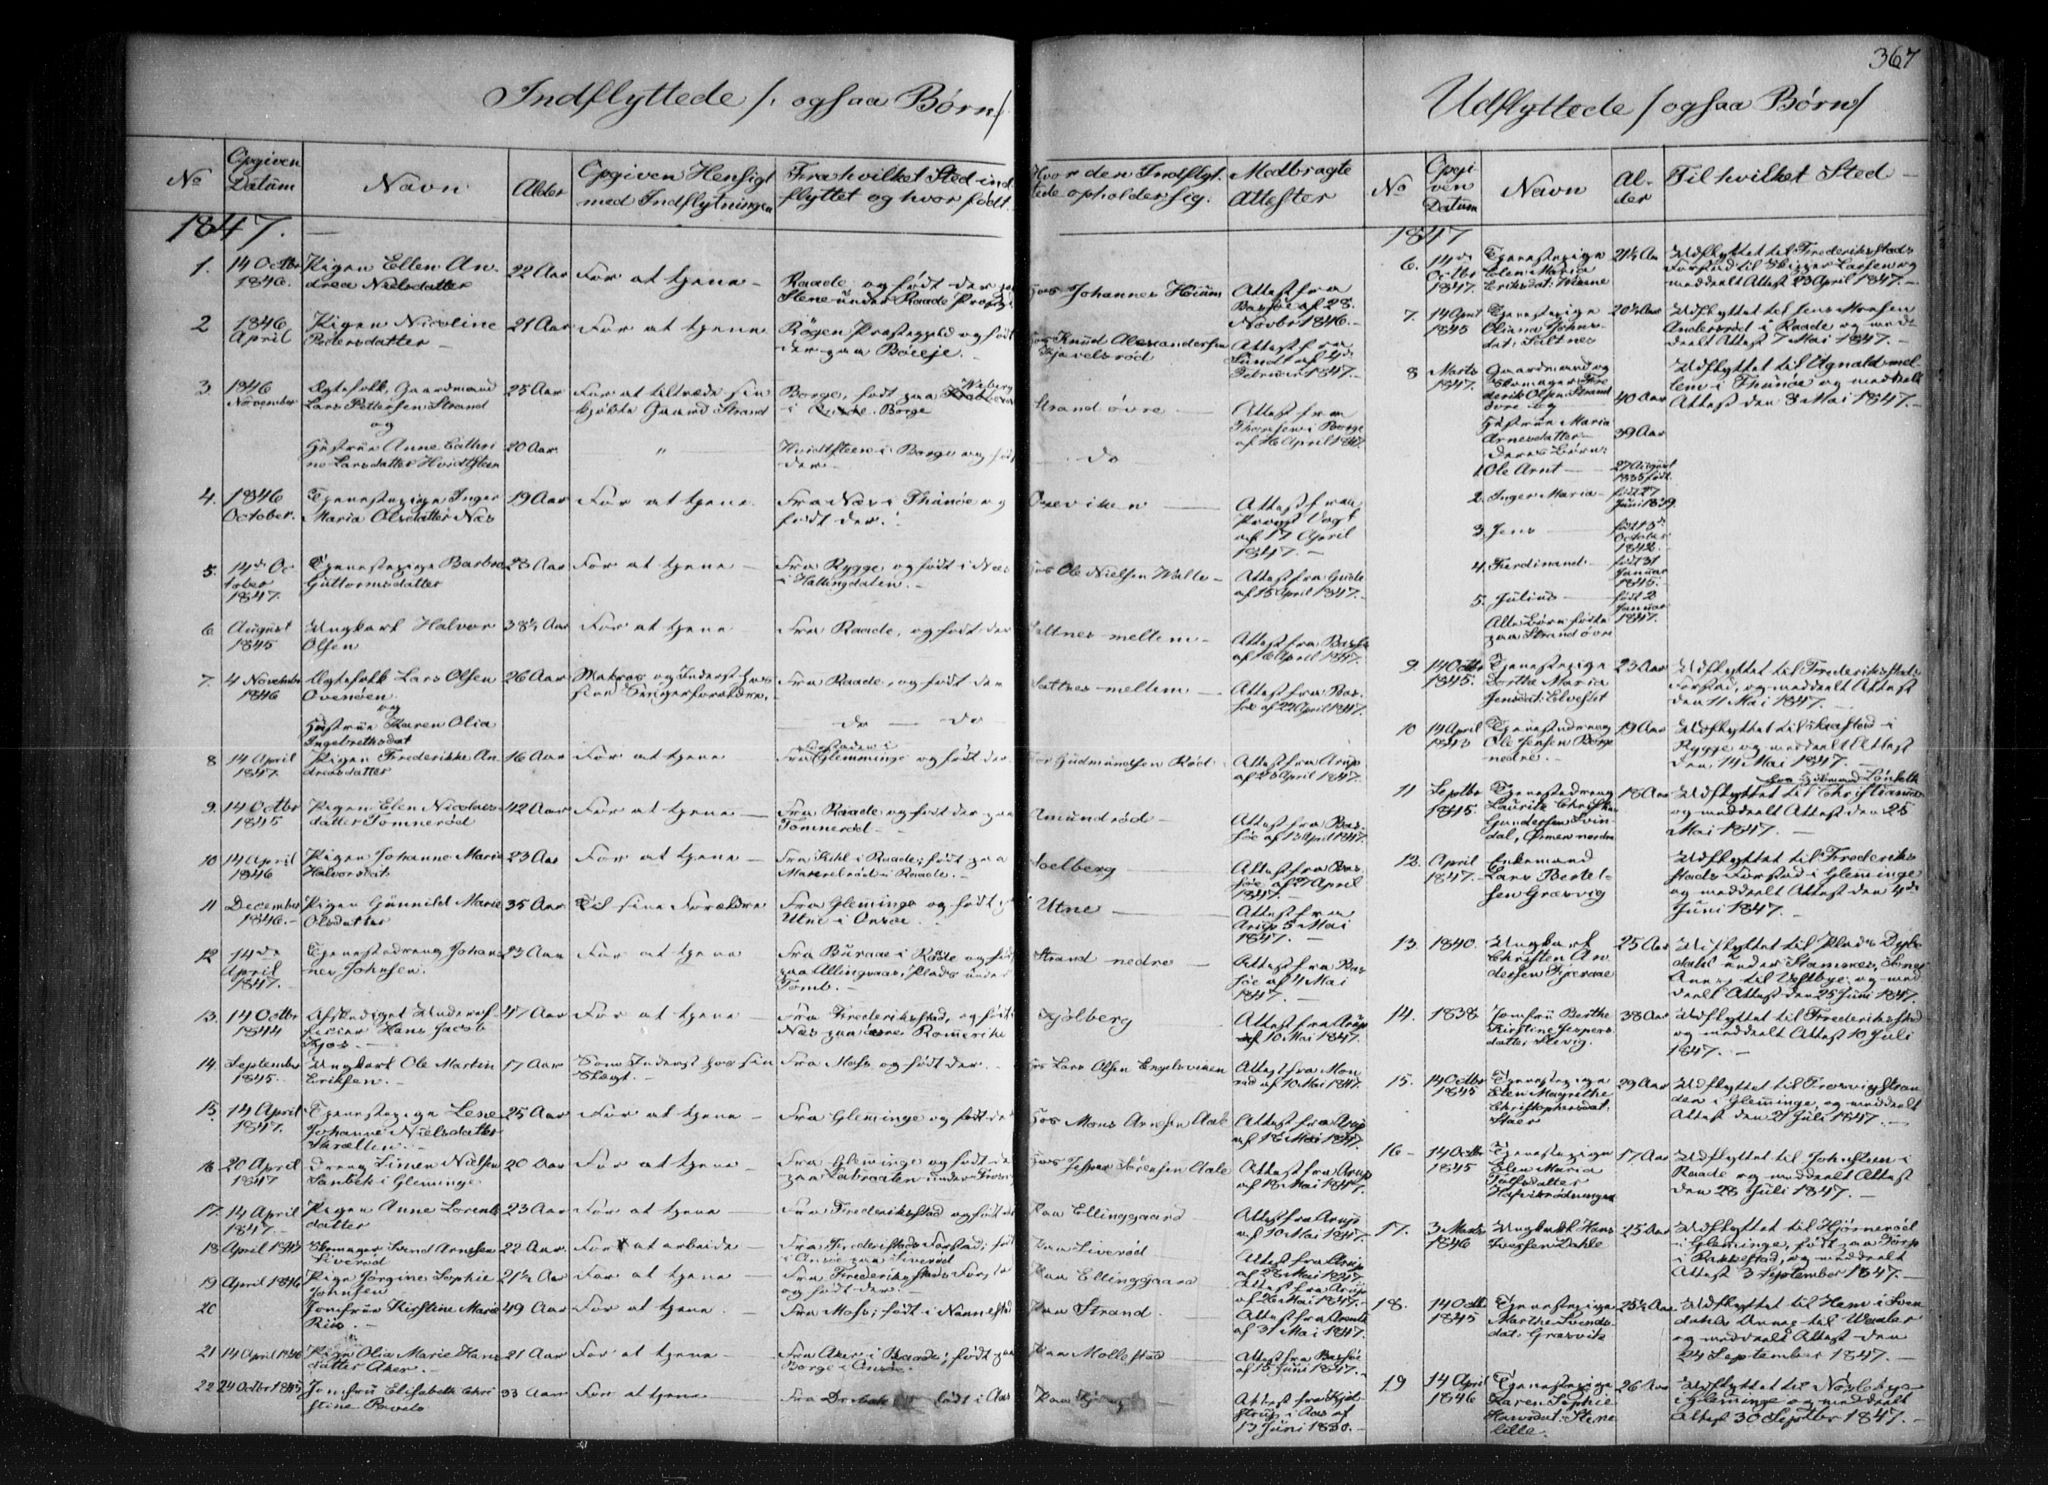 367
Indflyttede /: ogsaa Børn/
Udflyttede / ogsaa Børn/
No
Opgiven Datum
Navn
Alder
Opgiven Hensigt med Indflytningen
Fra hvilket Sted indflyttet og hvor født.
Hvor den Indflyttede opholder sig.
Medbragte Attester
1847.
1. 14 Octbr 1846. Pigen Ellen Andrea Nielsdatter 22 Aar For at tjene Raade og født der paa Stene under Raade Hos Johannes Attest fra Bassøe af 28. Novbr 1846.
2 1846 April Pigen Nicoline Pedersdatter 21 Aar For at tjene Røgen Præstegjeld og født der paa Hos Knud Alexandersen Attest fra Sundt af 4de Februar 1847.
3. 1846 November Ægtefolk, Gaardmand Lars Pettersen Strand og 25 Aar For at tiltræde sin kjøbte Gaard Strand Borge, født paa i Borge Strand øvre Attest fra i Borge af 16 April 1847.
Hustrue Anne Cathrine Larsdatter Hvidtsteen 20 Aar " Hvidtsteen i Borge og født der do
4. 1846 October. Tjenestepige Inger Maria Olsdatter Næs 19 Aar For at tjene. Fra Næs i Thunøe og født der. Attest fra Provst Vogt af 17 April 1847.
5. 14de October 1847. Tjenestepige Barbro Guttormsdatter 23 Aar For at tjene Fra Rygge, og født i Næs i Hallingdalen. Hos Ole Nielsen Walle Attest fra Gude af 15 April 1847.
6 August 1845 Ungkarl Halvor Olsen 38½ Aar For at tjene Fra Raade, og født der Saltnes mellem Attest fra Bassøe af 16 April 1847.
7. 4 November 1846 Ægtefolk Lars Olsen og 26 Aar Matros og Inderst hos sine Svigerforældre. Fra Raade, og født der Saltnes mellem Attest fra Bassøe af 22 April 1847.
Hustrue Karen Olia Ingebrethsdat do do
8 14 April 1847. Pigen Frederikke Andreasdatter 16 Aar For at tjene Fra Glemminge og født der. Gudmundsen Rød Attest fra Arup af 23 April 1847.
9. 14 Octbr 1845 Pigen Elen Nicolaisdatter Tomnerød 42 Aar For at tjene Fra Raade og født der paa Tomnerød Amundrød Attest fra Bassøe af 13 April 1847.
10 14 April 1846 Pigen Johanne Marie Halvorsdat 23 Aar For at tjene Fra Kihl i Raade; født paa Makrelrød i Raade. Soelberg Attest fra Bassøe af 27 April 1847.
11 December 1846. Pigen Gunnild Marie Olsdatter 35 Aar Til sine Forældre Fra Gleminge og født paa Utne i Onsøe. Utne Attest fra Arup 5 Mai 1847.
12 14de April 1847. Tjenestedreng Johannes Johnsen. 23 Aar For at tjene Fra Buraae i Raade og født paa Allingaas, Plads under Tomb. Strand nedre Attest fra Bassøe af 4 Mai 1847.
13. 14 Octbr 1844 Afskediget Underofficier Hans Jacob Kjos. 47 Aar For at tjene Fra Frederiksstad, og født i Næs paa øvre Romerike Kjølberg Attest fra Arup af 10 Mai 1847.
14. September 1845. Ungkarl Ole Martin Eriksen. 17 Aar Som Inderst hos sin Slægt. Fra Moss og født der. Hos Lars Olsen Engelsviken Attest fra Monrad af 10 Mai 1847.
15. 14 April 1847. Tjenestepige Lene Johanne Nielsdatter 25 Aar For at tjene Fra Gleminge og født der Hos Mons Arnesen Aale Attest fra Arup af 18 Mai 1847.
16 20 April 1847 Dreng Simen Nielsen Sanbek i Gleminge 20 Aar For at tjene Fra Gleminge og født der paa Labraaten under Hos Jesper Sørensen Aale Attest fra Arup af 18 Mai 1847.
17. 14 April 1847. Pigen Anne Larentsdatter 23 Aar For at tjene Fra Frederiksstad og født der Paa Ellinggaard Attest fra Arup af 10 Mai 1847.
18 April 1847 Skomager Svend Arnesen Liverød 22 Aar. For at arbeide Fra Frederikstads Forstad; født i Onsøe paa Liverød Paa Liverød Attest fra Arup af 22 Mai 1847.
19 April 1846 Pige Jørgine Sophie Johnsen 21½ Aar For at tjene Fra Frederiksstads Forstad og født der. Paa Ellinggaard Attest fra Arup af 26 Mai 1847.
20 Jomfrue Kirstine Marie Riis. 49 Aar For at tjene. Fra Moss; født i Nannestad Paa Strand. Attest fra af 31 Mai 1847.
21 14 April 1846 Pige Olia Marie Hansdatter Aker. 21 Aar For at tjene. Fra Aker i Raade; født paa Borge i Onsøe. Paa Mollestad Attest fra Bassøe af 15 Juni 1847.
22 24 Octbr 1845 Jomfru Elisabeth Christine Povels 33 Aar For at tjene Fra født i Aas Paa Attest fra i Aas af 17 Juni 1830.
No
Opgiven Datum
Navn
Alder
Til hvilket Sted
1847
6. 14de Octbr 1847. Tjenestepige Elen Maria Eriksdat: 21½ Aar Udflyttet til Frederiksstads Forstad til Skipper Larsen og meddeelt Attest 23 April 1847.
7. 14 April 1845 Tjenestepige Oliana Johnsdat: Saltnes 20½ Aar Udflyttet til Jens Andersrød i Raade og meddeelt Attest 7 Mai 1847.
8 Marts 1847. Gaardmand og Skomager Frederik Olsen Strand øvre og 40 Aar Udflyttet til Ugnald mellem i Thunøe og meddeelt Attest den 8 Mai 1847.
Hustrue Maria Arnesdatter 39 Aar
Deres Børn:
1. Ole Arnt 27 August 1835 født.
2. Inger Maria født 27 Juni 1839
3. Jens født 3de October 1842.
4. Ferdinand født 31 Januar 1845.
5. Julius født 2 Januar 1847.
Alle Børn fødte paa Strand øvre
9 14 Octbr 1845. Tjenestepige Dorthe Maria Jensdat: Elvestet 23 Aar Udflyttet til Frederiksstads Forstad, og meddeelt Attest den 11 Mai 1847.
10 14 April 1843 Tjenestedreng Ole Jensen Borge nedre. 19 Aar Udflyttet til i Rygge og meddeelt Attest den 14 Mai 1847.
11 Septbr 1845. Tjenestedreng Laurits Christian Gundersen Svindal, Ørmen nedre 18 Aar Udflyttet til Christiania og meddeelt Attest den 25 Mai 1847.
12. April 1847. Enkemand Lars Bertelsen Græsvig Udflyttet til Frederiksstads Forstad i Gleminge og meddeelt Attest den 4de Juni 1847.
13. 1840. Ungkarl Christen Andersen Fjeraae 25 Aar Udflyttet til Plads under Stamnes, Annex til Vestbye og meddeelt Attest den 25 Juni 1847.
14. 1838. Jomfru Berthe Kirstine Jespersdatter Slevig. 38 Aar Udflyttet til Frederiksstad og meddeelt Attest 10 Juli 1847.
15. 14 Octbr 1845 Tjenestepige Elen Magrethe Christophersdat: Staer 29 Aar Udflyttet til Trosvigstranden i Gleminge, og meddeelt Attest den 2 Juli 1847.
16 14 Octbr 1845 Tjenestepige Elen Maria 17 Aar Udflyttet til Johnsten i Raade og meddeelt Attest den 28 Juli 1847.
17. 3 Marts 1846 Ungkarl Hans Iversen Dahle 25 Aar Udflyttet til Hjørnerød i Gleminge, født paa Torp i Rakkestad, og meddeelt Attest 3 September 1847.
18. 14 Octb 1845 Tjenestepige Marthe Svendsdat: Græsvik 25½ Aar Udflyttet til Hem i Svendals Annex til Waaler og meddeelt Attest den 24 September 1847.
19 14 April 1846 Tjenestepige Karen Sophie Hansdat: Stene lille. 26 Aar Udflyttet til i Gleminge og meddeelt Attest 30 Septbr 1847.